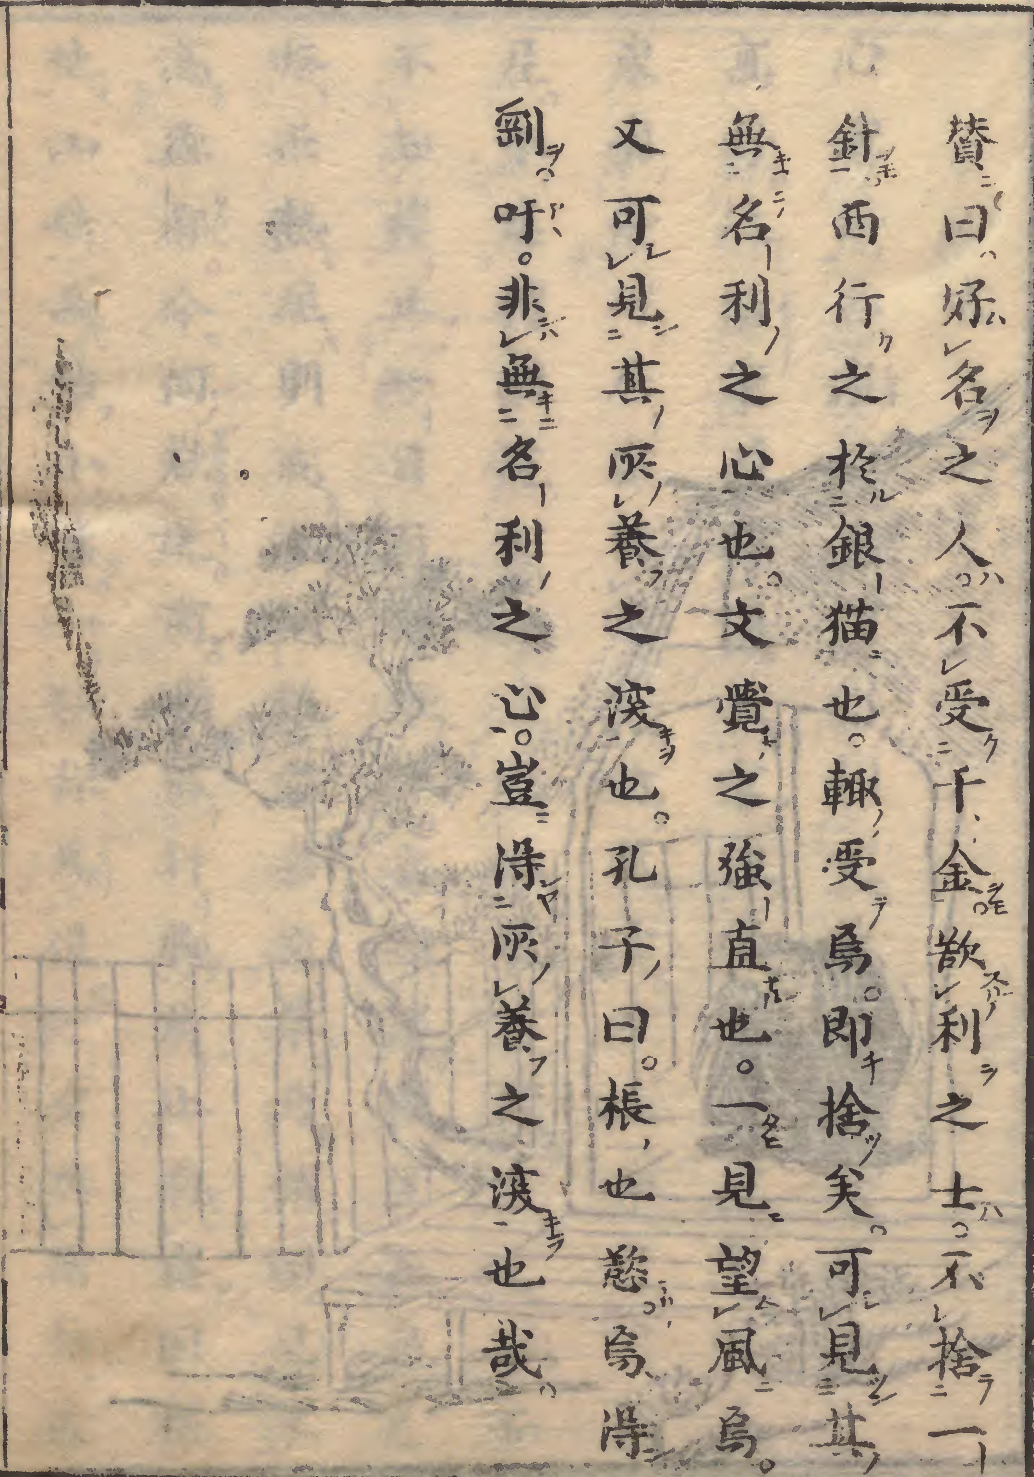 賛曰好名之人。不受千金。欲利之士。不捨一
針。西行之於銀猫也。輙受焉。即捨矣。可見其
無名利之心也。文覺之強直也。一見望風焉。
又可見其所養之深也。孔子曰。棖也慾。焉得
剛。吁。非無名利之心。豈得所養之深也哉。